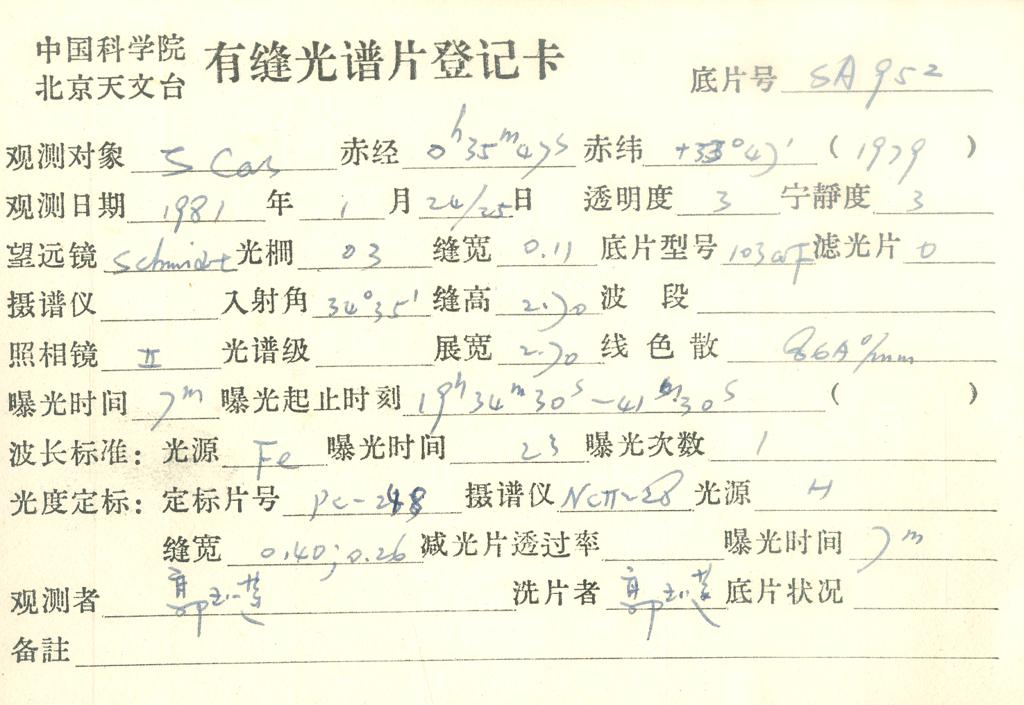 中国科学院
北京天文台 有缝光谱片登记卡 底片号 SA952
观测对象 S Cas 赤经 0ʰ35ᵐ47ˢ 赤纬 +33°47′ ( 1979 )
观测日期 1981 年 1 月 24/25 日 透明度 3 宁静度 3
望远镜 Schmidt 光栅 03 缝宽 0.11 底片型号 103aF 滤光片 0
摄谱仪 入射角 34°35′ 缝高 2.70 波段
照相镜 II 光谱级 展宽 2.70 线色散 86A°/mm
曝光时间 7ᵐ 曝光起止时刻 19ʰ34ᵐ30ˢ-41ᵐ30ˢ ( )
波长标准: 光源 Fe 曝光时间 23 曝光次数 1
光度定标: 定标片号 PC-248 摄谱仪 光源 H
缝宽 0.40; 0.26 减光片透过率 曝光时间 7ᵐ
观测者 洗片者 底片状况
备註